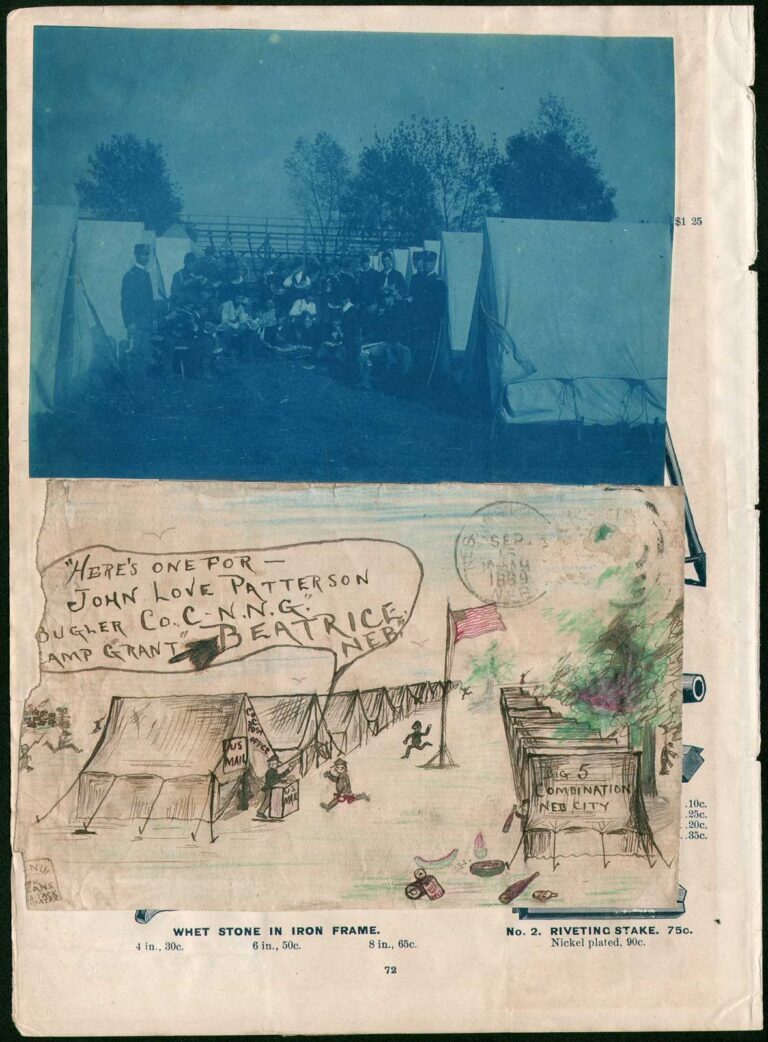 $1 25
"HERE'S ONE FOR —
JOHN LOVE PATTERSON
BUGLER CO. C - N.N.G."
AMP GRANT" BEATRICE.
NEB"
SEP
15
1889
NEB
CO C
POST
OFFICE
U S
MAIL
U S
MAIL
BIG 5
COMBINATION
NEB CITY
.10c.
.25c.
.20c.
.35c.
WHET STONE IN IRON FRAME.
4 in., 30c. 6 in., 50c. 8 in., 65c.
No. 2. RIVETING STAKE. 75c.
Nickel plated, 90c.
72